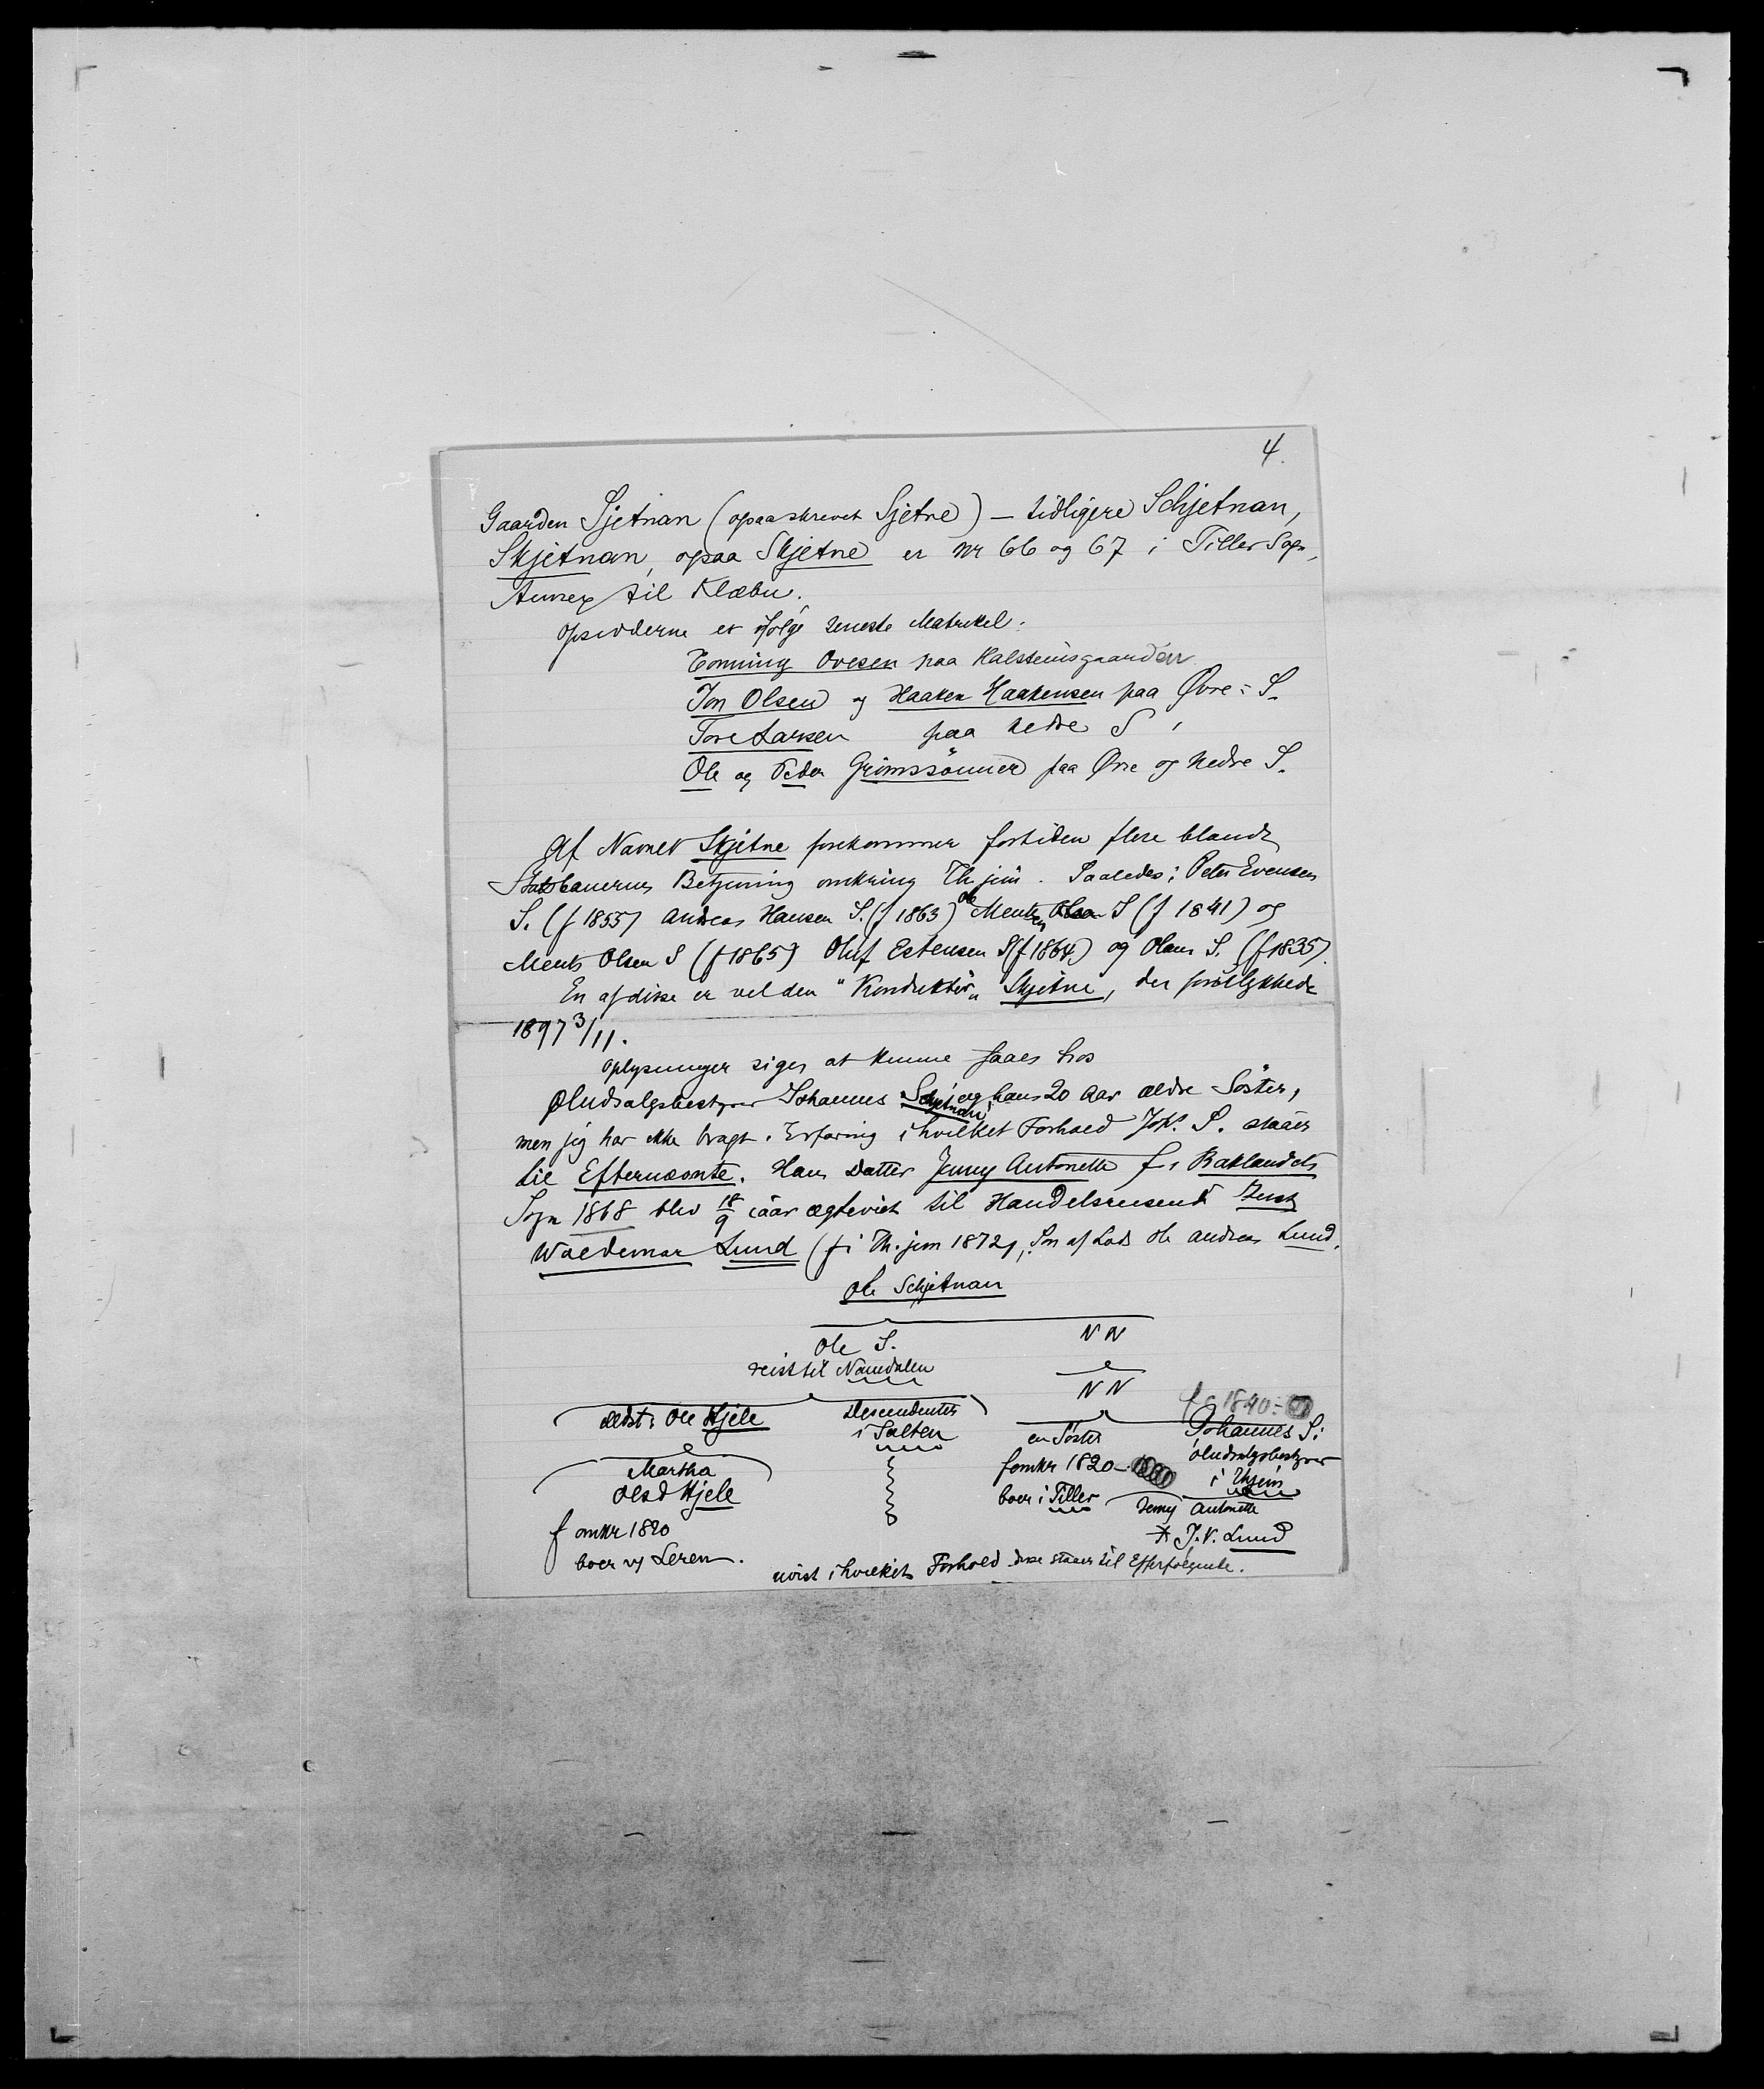 4.
Gaarden Sjetnan (ogsaa skrevet Sjetne) – tidligere Schjetnan,
Skjetnan, ogsaa Skjetne er Nr 66 og 67 i Tiller Sogn,
Annex til Klæbu.
Opsidderne er ifølge seneste Matrikel:
Henning Ovesen paa Kalsteinsgaarden
Jon Olsen og Haaken Haakensen paa Øvre-S.
Tore Larsen paa Nedre S,
Ole og Peder Grimssönner paa Øvre og Nedre S.
Af Navnet Skjetne forekommer fortiden flere blandt
Statsbanernes Betjening omkring Th.jem. Saaledes: Peter Evensen
S. (f 1855) Andreas Hansen S. (f 1863) Ole Mentsen S (f 1841) og
Ments Olsen S (f 1865) Oluf Estensen S (f 1864) og Olaus S. (f 1835).
En af disse er vel den "Konduktör" Skjetne, der forulykkede
1897 3/11.
Oplysninger siges at kunne faaes hos
Øludsalgsbestyrer Johannes Schjetnan og hans 20 Aar ældre Söster,
men jeg har ikke bragt i Erfaring i hvilket Forhold Joh. S. staaer
til Efternævnte. Hans Datter Jenny Antonette f. i Baklandets
Sogn 1868 blev 18/9 iaar ægteviet til Handelsreisende
Waldemar Lund (f i Th.jem 1872), Sön af Lods Ole Andreas Lund.
Ole Schjetnan
Ole S. NN
reist til Namdalen
NN
f. c 1840.
ældst: Ole Hjele Descendenter i Salten en Söster Johannes S:
Martha f omkr 1820 Øludsalgsbestyrer
Olsd Hjele boer i Tiller i Thjem
Jenny Antonette
f omkr 1820 J.V. Lund
boer v/ Leren.
uvist i hvilket Forhold disse staaer til Efterfølgende.